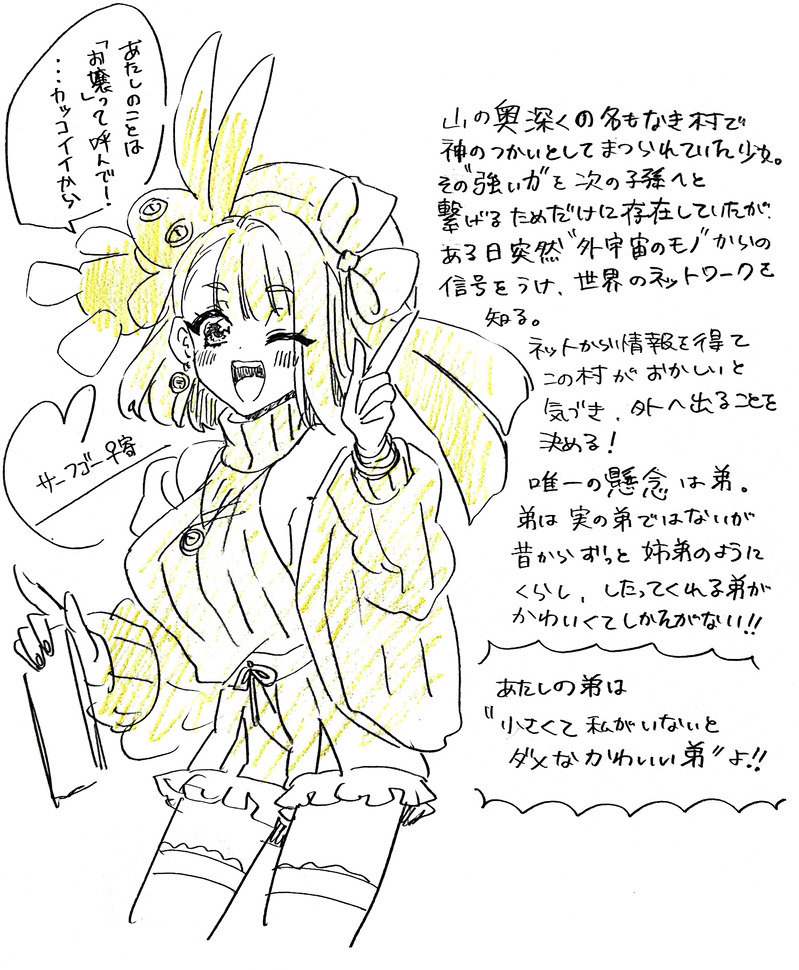 あたしのことは
「お嬢」って呼んで!
...カッコイイから
山の奥深くの名もなき村で
神のつかいとしてまつられていた少女。
その"強い力"を次の子孫へと
繋げるためだけに存在していたが、
ある日突然"外宇宙のモノ"からの
信号をうけ、世界のネットワークを
知る。
ネットから情報を得て
この村がおかしいと
気づき、外へ出ることを
決める!
唯一の懸念は弟。
弟は実の弟ではないが
昔からずっと姉弟のように
くらし、したってくれる弟が
かわいくてしかたがない!!
あたしの弟は
"小さくて私がいないと
ダメなかわいい弟"よ!!